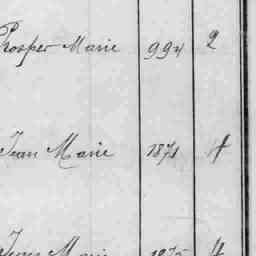 Prosper Marie 994 2
Jean Marie 1871 4
Jean Marie 1875 4